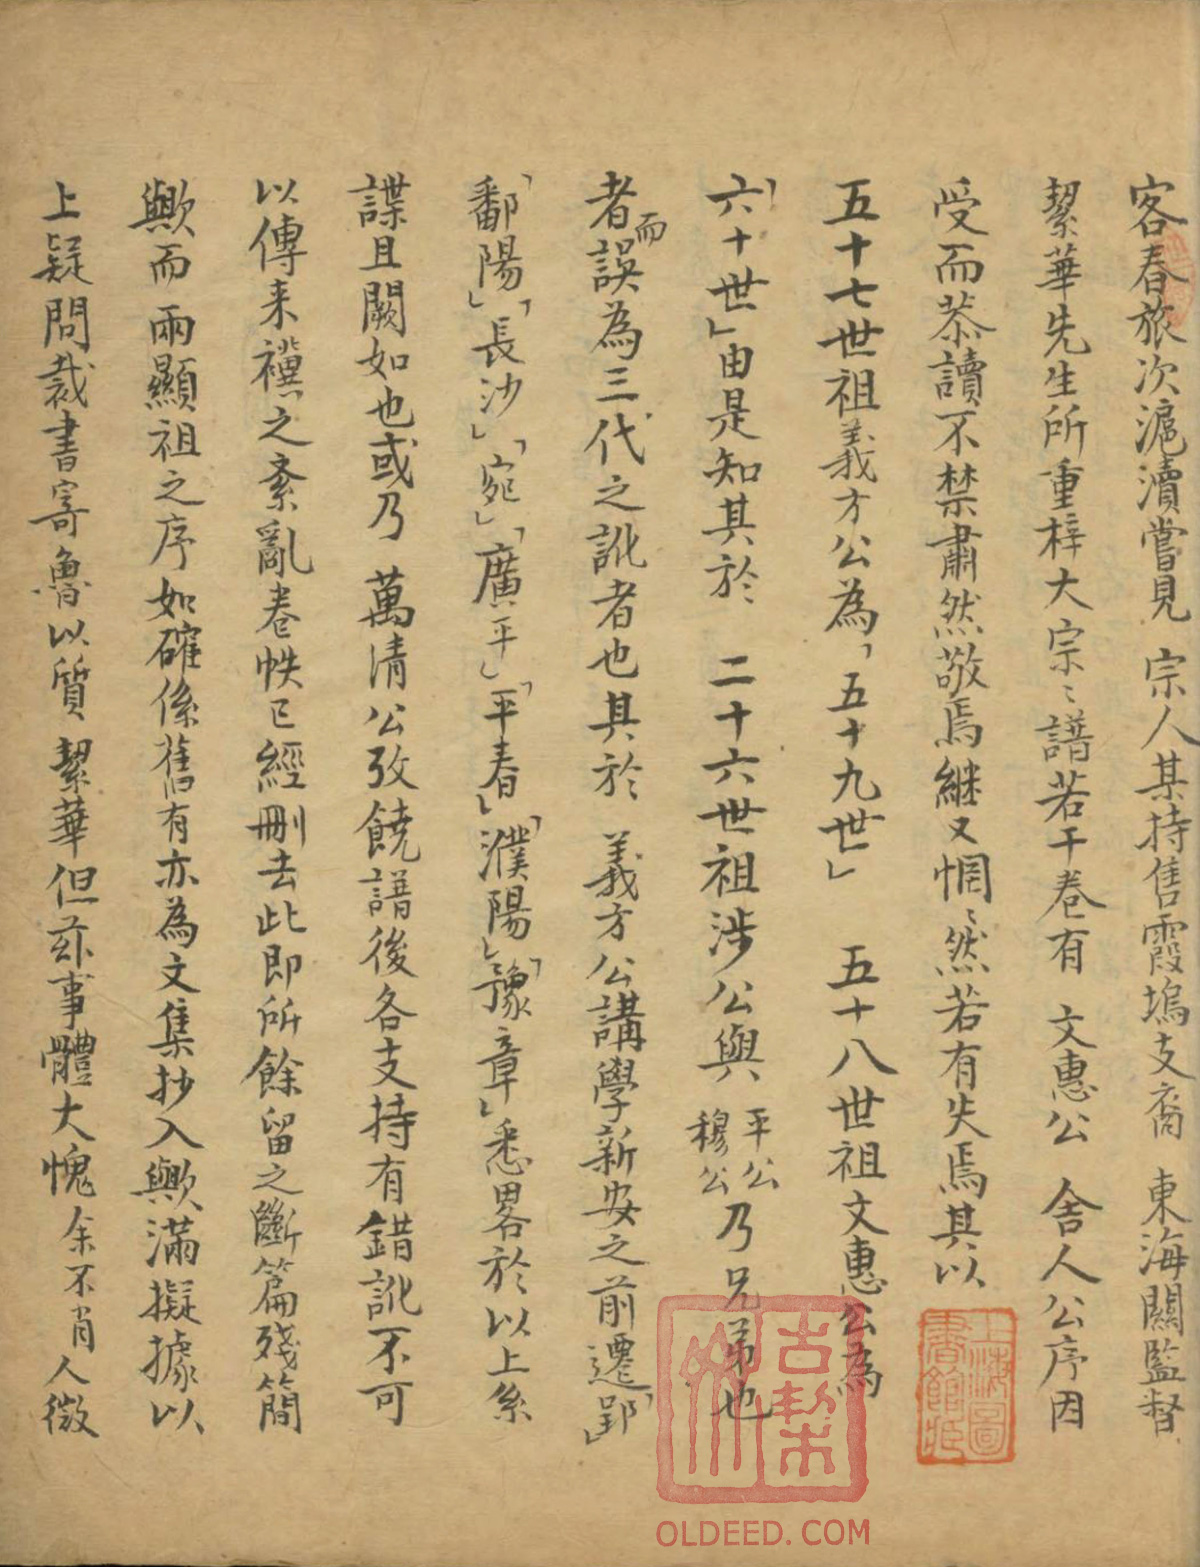 客春旅次滬瀆嘗見 宗人某持售霞塢支裔 東海關監督
絜華先生所重梓大宗〻譜若干卷有 文惠公 舍人公序因
受而恭讀不禁肅然敬焉繼又惘〻然若有失焉其以
五十七世祖義方公為「五十九世」 五十八世祖文惠公為
「六十世」由是知其於 二十六世祖涉公與平公穆公乃兄弟也
者而誤為三代之訛者也其於 義方公講學新安之前遷「郢」
「鄱陽」「長沙」「宛」「廣平」「平春」「濮陽」「豫章」悉畧於以上系
諜且闕如也或乃 萬清公攷饒譜後各支持有錯訛不可
以傳来襈之紊亂卷帙已經刪去此即所餘留之斷篇殘簡
歟而兩顯祖之序如確係舊有亦為文集抄入歟滿擬據以
上疑問裁書寄魯以質 絜華但茲事體大愧余不肖人微
上海圖書館藏
古籍
OLDEED.COM